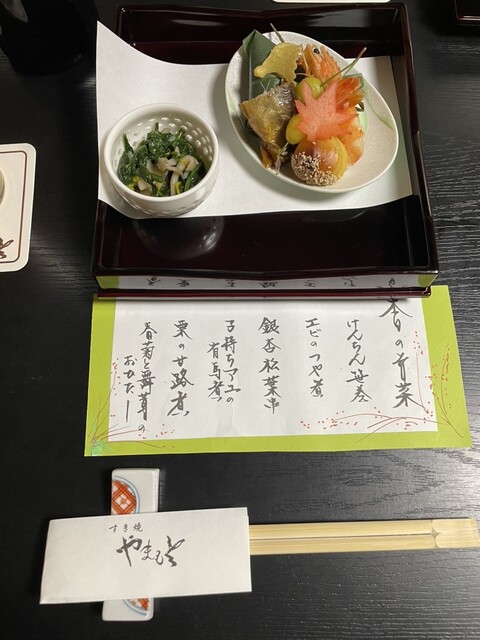 本日の前菜
けんちん笹巻
エビのつや煮
銀杏松葉串
子持ちアユの
有馬煮
栗の甘露煮
春菊と舞茸の
おひたし
すき焼